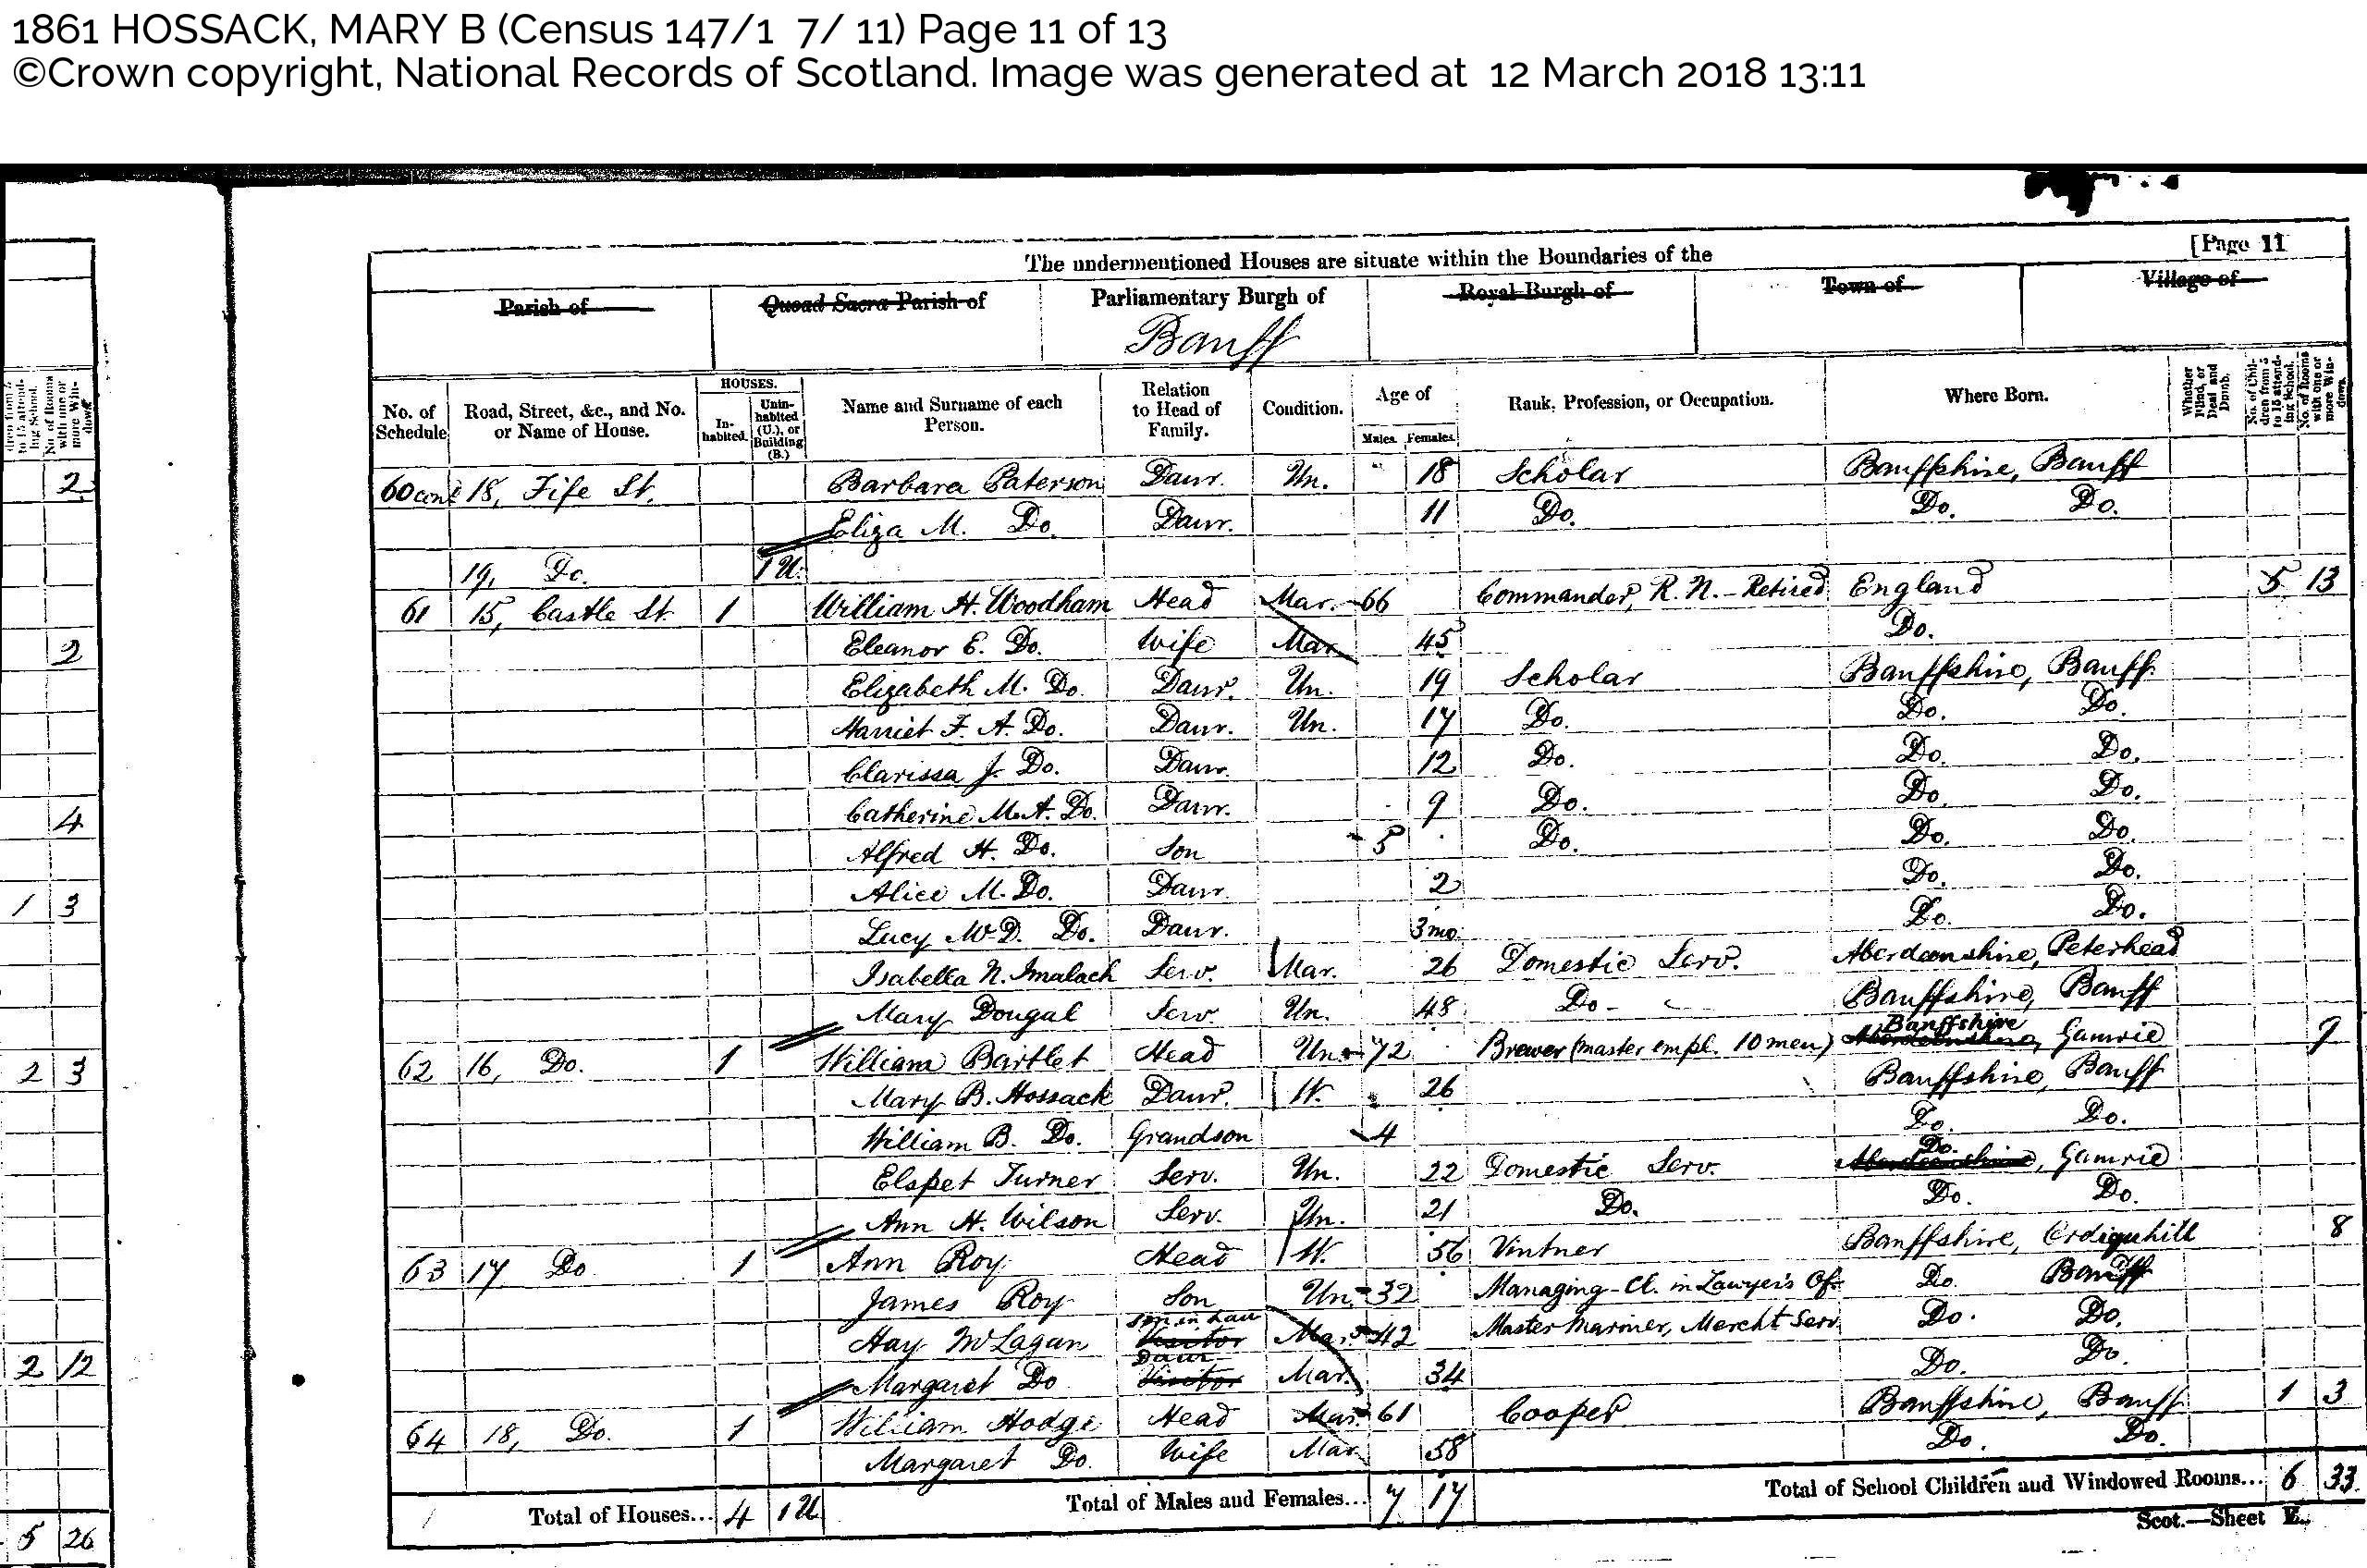 1861 HOSSACK, MARY B (Census 147/1 7/ 11) Page 11 of 13
©Crown copyright, National Records of Scotland. Image was generated at 12 March 2018 13:11
[Page 11
The undermentioned Houses are situate within the Boundaries of the
Parish of Quoad Sacra Parish of Parliamentary Burgh of Royal Burgh of Town of Village of
Banff
No. of Schedule Road, Street, &c., and No. or Name of House. HOUSES. Inhabited. Uninhabited (U.), or Building (B.) Name and Surname of each Person. Relation to Head of Family. Condition. Age of Males. Females. Rank, Profession, or Occupation. Where Born. Whether Blind, or Deaf and Dumb. No. of Children from 5 to 15 attending School. No. of Rooms with one or more Windows.
60 cont 18, Fife St. Barbara Paterson Daur. Un. 18 Scholar Banffshire, Banff
2
Eliza M. Do. Daur. 11 Do. Do. Do.
19, Do. 1 U.
61 15, Castle St. 1 William H. Woodham Head Mar. 66 Commander, R. N. - Retired England 5 13
2 Eleanor E. Do. Wife Mar 45 Do.
Elizabeth M. Do. Daur. Un. 19 Scholar Banffshire, Banff.
Harriet F. A. Do. Daur. Un. 17 Do. Do. Do.
Clarissa J. Do. Daur. 12 Do. Do. Do.
4 Catherine M. A. Do. Daur. 9 Do. Do. Do.
Alfred H. Do. Son 5 Do. Do. Do.
1 3 Alice M. Do. Daur. 2 Do. Do.
Lucy McD. Do. Daur. 3 mo. Do. Do.
Isabella N. Imalach Serv. Mar. 26 Domestic Serv. Aberdeenshire, Peterhead
Mary Dougal Serv. Un. 48 Do. Banffshire, Banff
2 3 62 16, Do. 1 William Bartlet Head Un. 72 Brewer (master empl. 10 men) Aberdeenshire, Banffshire Gamrie 9
Mary B. Hossack Daur. W. 26 Banffshire, Banff
William B. Do. Grandson 4 Do. Do.
Elspet Turner Serv. Un. 22 Domestic Serv. Aberdeenshire, Do. Gamrie
Ann H. Wilson Serv. Un. 21 Do. Do. Do.
63 17 Do 1 Ann Roy Head W. 56 Vintner Banffshire, Ordiquhill 8
James Roy Son Un. 32 Managing-Cl. in Lawyer's Of. Do. Banff
2 12 Hay McLagan Visitor Son in Law Mar. 42 Master Mariner, Mercht Serv. Do. Do.
Margaret Do Visitor Daur Mar. 34 Do. Do.
64 18, Do. 1 William Hodge Head Mar. 61 Cooper Banffshire, Banff 1 3
Margaret Do. Wife Mar 58 Do. Do.
Total of Houses... 4 1 U Total of Males and Females... 7 17 Total of School Children and Windowed Rooms... 6 33
5 26
Scot.—Sheet E.